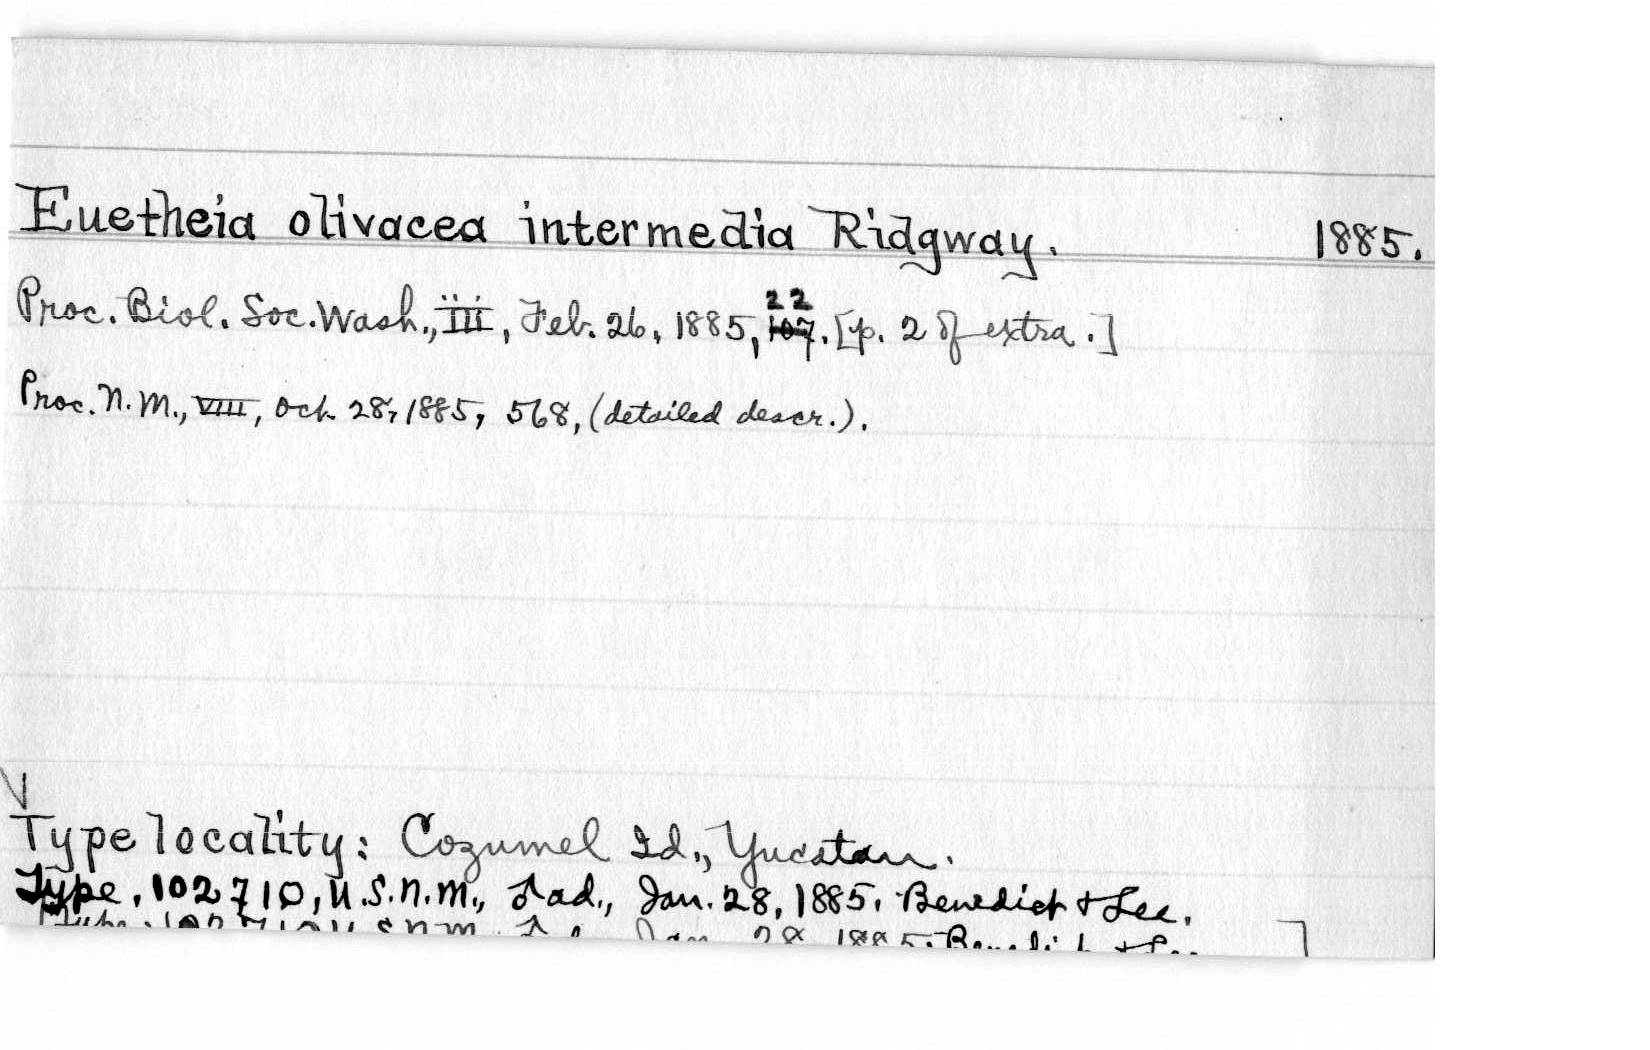 Euetheia olivacea intermedia Ridgway. 1885.
Proc. Biol. Soc. Wash., iii, Feb. 26, 1885, 22 107. [p. 2 of extra.]
Proc. N. M., VIII, Oct. 28, 1885, 568, (detailed descr.).
Type locality: Cozumel Id., Yucatan.
Type, 102710, U.S.N.M., ♂ ad., Jan. 28, 1885. Benedict + Lee.